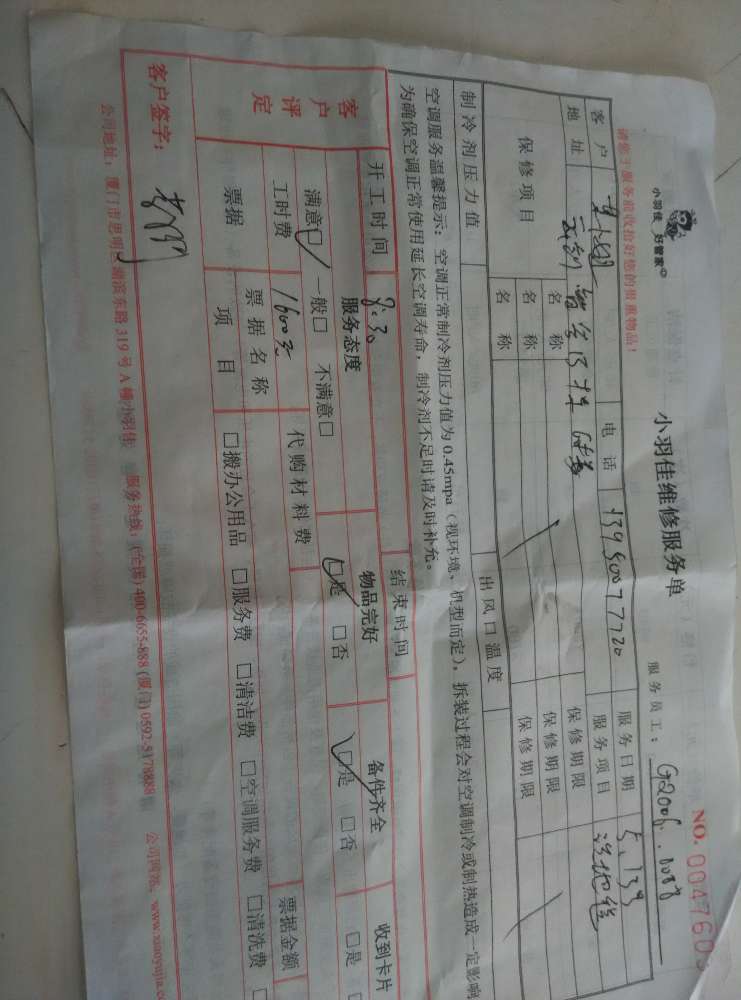 小羽佳 好管家
小羽佳维修服务单
NO. 004760
请您于服务前收拾好您的贵重物品！
服务员工：
客户
电话 13950077720
服务日期
地址
服务项目
保修项目
名称
保修期限
名称
保修期限
名称
保修期限
制冷剂压力值
出风口温度
空调服务温馨提示：空调正常制冷剂压力值为0.45mpa（视环境、机型而定），拆装过程会对空调制冷或制热造成一定影响
为确保空调正常使用延长空调寿命，制冷剂不足时请及时补充。
开工时间 8:30
结束时间
客户评定
服务态度
物品完好
备件齐全
收到卡片
满意□ 一般□ 不满意□
□是 □否
□是 □否
□是
工时费 1600元
代购材料费
票据金额
票据
票据名称
项目
□搬办公用品 □服务费 □清洁费 □空调服务费 □清洗费
客户签字：
公司地址：厦门市思明区湖滨东路319号A幢小羽佳 服务热线：(全国)400-6655-888 (厦门)0592-5178888 公司网站：www.xiaoyujia.co